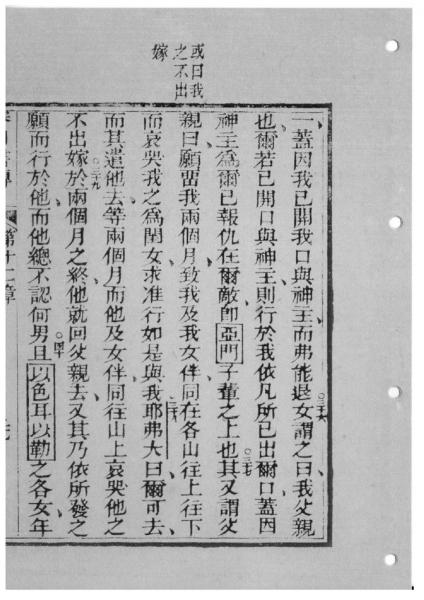 或曰我
之不出
嫁
一蓋因我已開我口與神主而弗能退女謂之曰我父親
也爾若已開口與神主則行於我依凡所已出爾口蓋因
神主為爾已報仇在爾敵卽亞門子輩之上也其又謂父
親曰願畱我兩個月致我及我女伴同在各山往上往下
而哀哭我之為閨女求准行如是與我耶弗大曰爾可去
而其遣他去等兩個月而他及女伴同往山上哀哭他之
不出嫁於兩個月之終他就回父親去又其乃依所發之
願而行於他而他總不認何男且以色耳以勒之各女年
第十一章